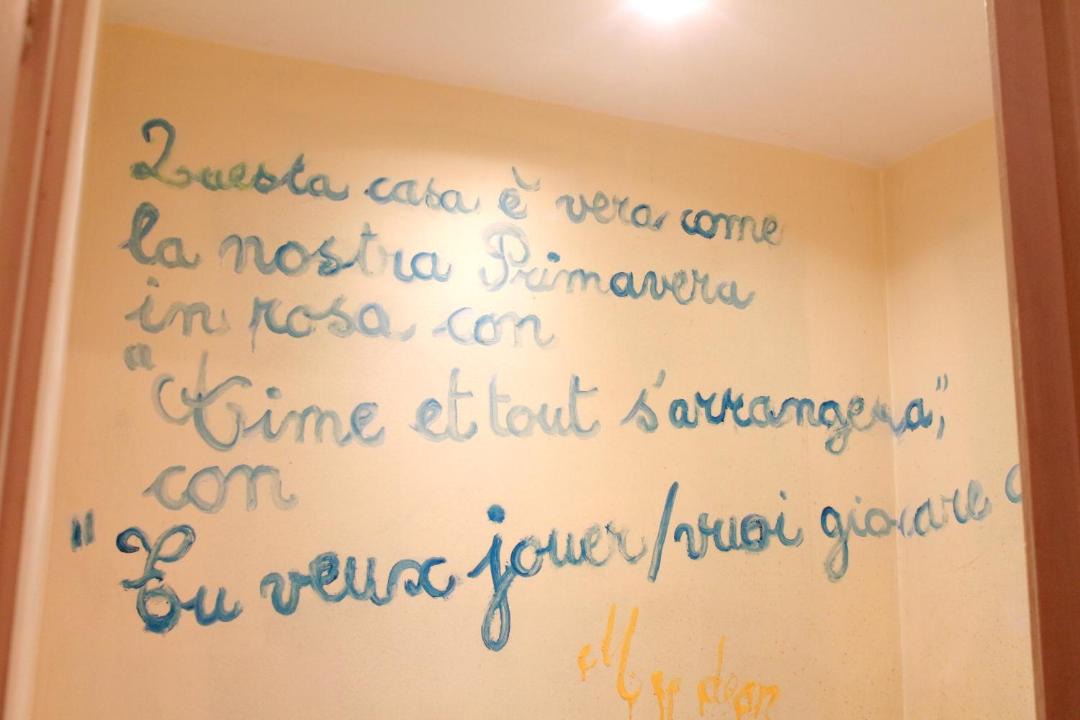 Questa casa è vera come
la nostra Primavera
in rosa con
"Aime et tout s'arrangera",
con
"Tu veux jouer/vuoi giocare
My dear